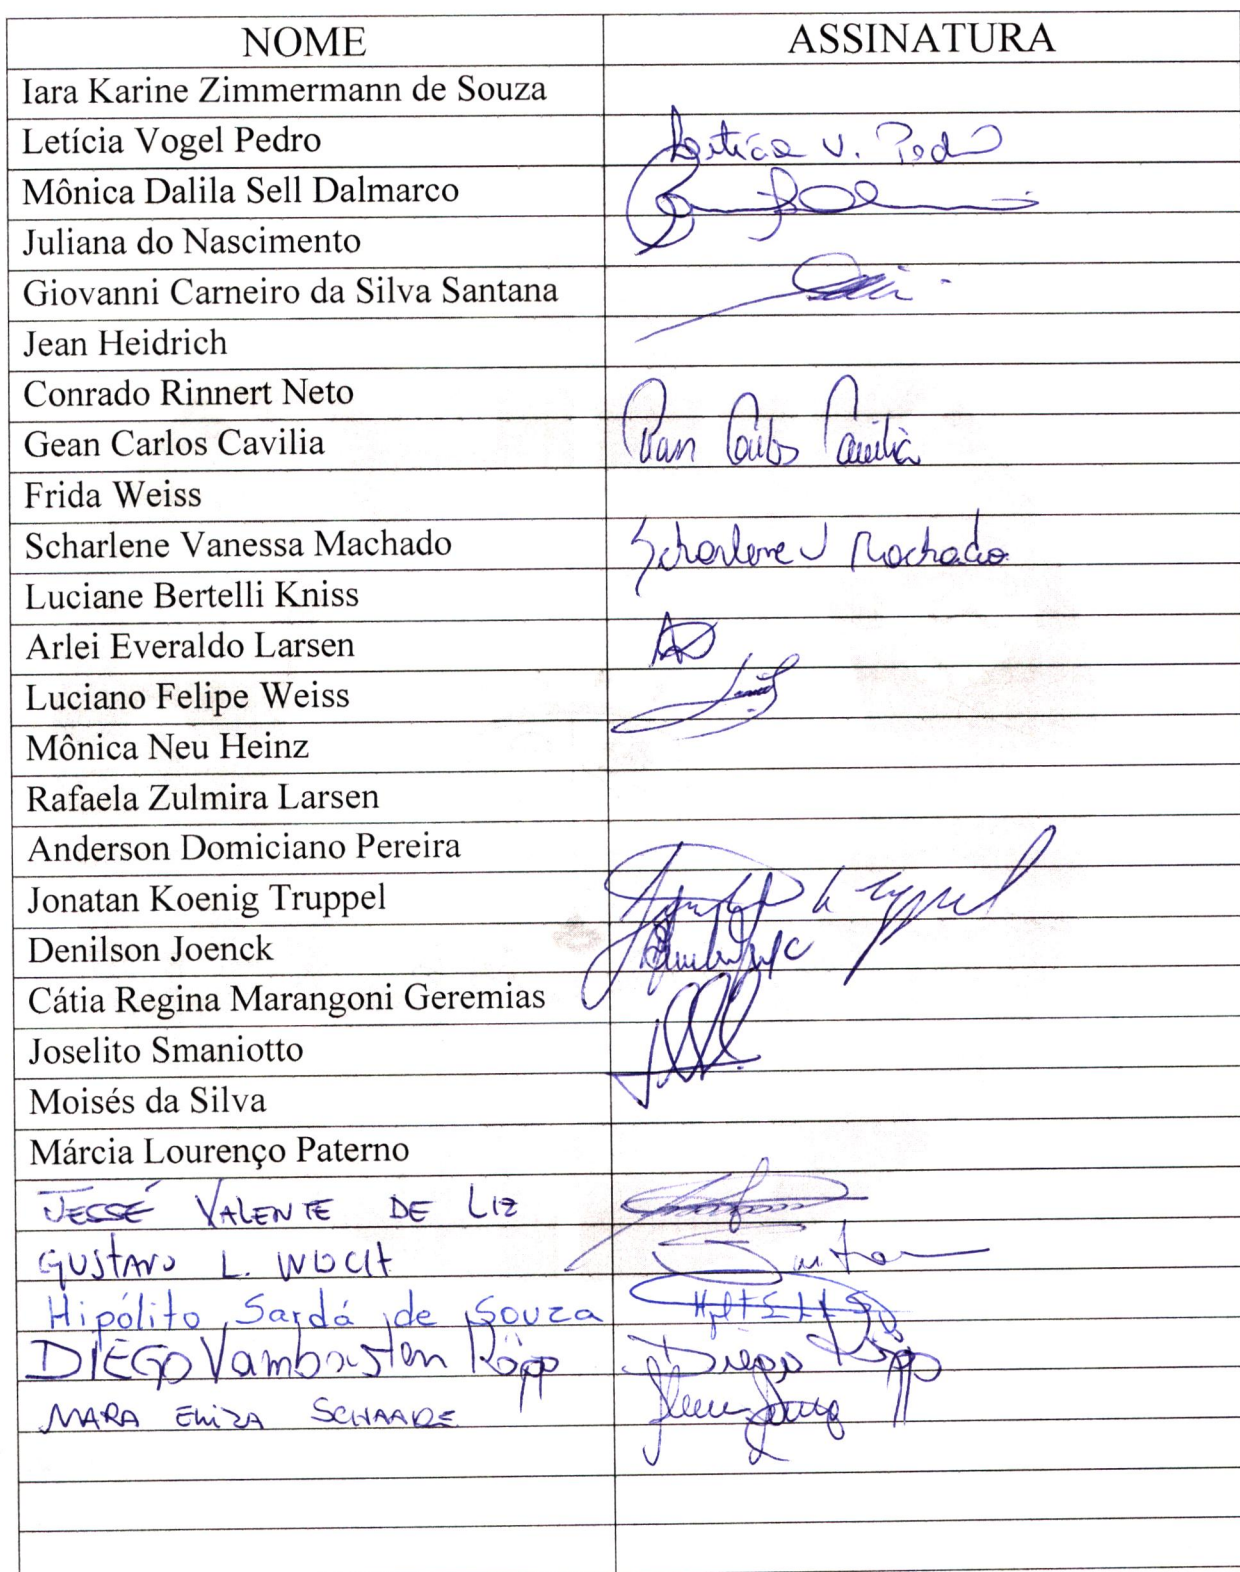 NOME ASSINATURA
Iara Karine Zimmermann de Souza
Letícia Vogel Pedro Letícia V. Pedro
Mônica Dalila Sell Dalmarco
Juliana do Nascimento
Giovanni Carneiro da Silva Santana
Jean Heidrich
Conrado Rinnert Neto
Gean Carlos Cavilia Gean Carlos Cavilia
Frida Weiss
Scharlene Vanessa Machado Scharlene V Machado
Luciane Bertelli Kniss
Arlei Everaldo Larsen
Luciano Felipe Weiss
Mônica Neu Heinz
Rafaela Zulmira Larsen
Anderson Domiciano Pereira
Jonatan Koenig Truppel
Denilson Joenck
Cátia Regina Marangoni Geremias
Joselito Smaniotto
Moisés da Silva
Márcia Lourenço Paterno
JESSÉ VALENTE DE LIZ
GUSTAVO L.
Hipólito Sardá de Souza
DIEGO Köpp Diego Köpp
MARA ELIZA SCHAADE